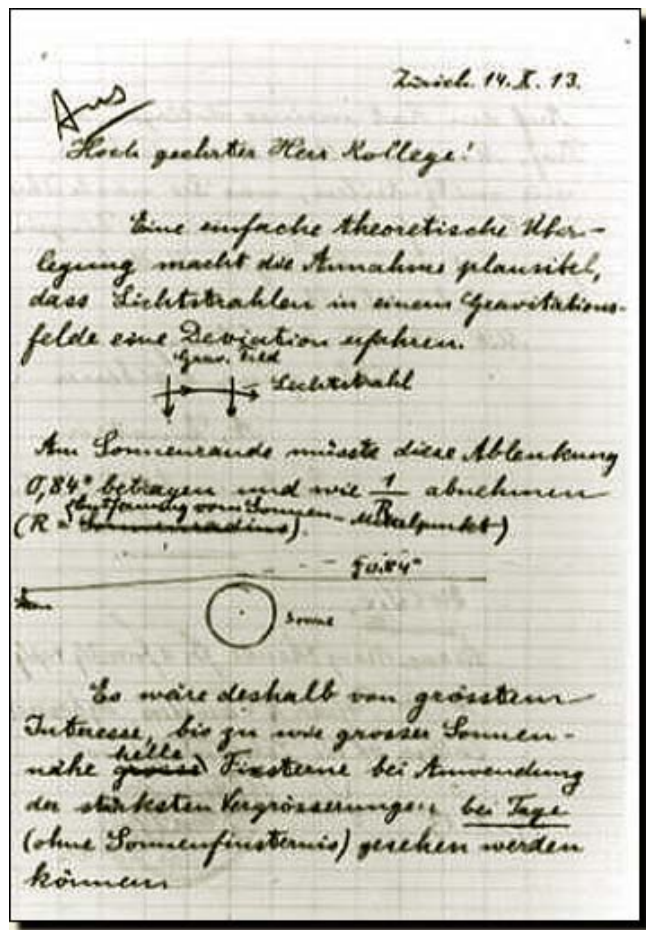 Zürich. 14. X. 13.
Hoch geehrter Herr Kollege!
Eine einfache theoretische Über-
legung macht die Annahme plausibel,
dass Lichtstrahlen in einem Gravitations-
felde eine Deviation erfahren.
Grav. Feld
Lichtstrahl
Am Sonnenrande müsste diese Ablenkung
0,84" betragen und wie 1/R abnehmen
(R = Sonnenradius Entfernung vom Sonnen-Mittelpunkt)
0.84"
Sonne
Es wäre deshalb von grösstem
Interesse, bis zu wie grosser Sonnen-
nähe grosse helle Fixsterne bei Anwendung
der stärksten Vergrösserungen bei Tage
(ohne Sonnenfinsternis) gesehen werden
können.